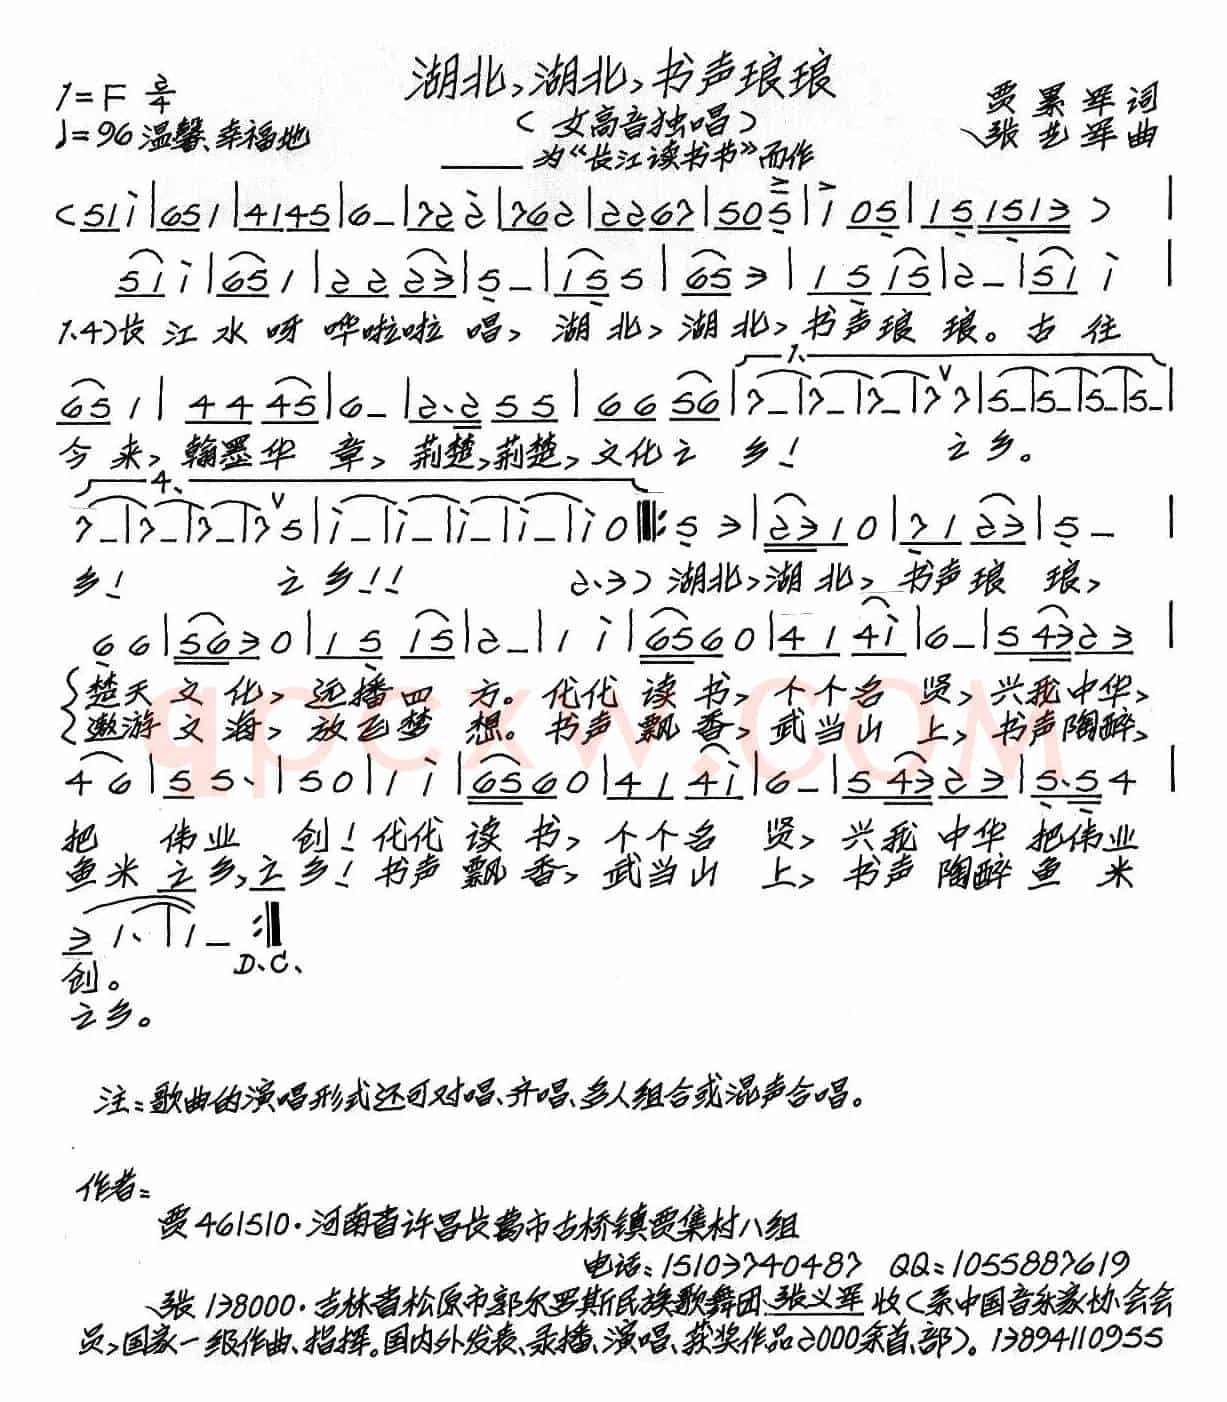 湖北,湖北,书声琅琅
1=F 2/4
(女高音独唱)
贾累军 词
♩=96 温馨、幸福地
——为“长江读书节”而作
张艺军 曲
(51i|651|4145|6–|722|762|2267|505|i05|151513)|
51i|651|2223|5–|155|653|1515|2–|51i|
1.4)长江水呀哗啦啦唱,湖北,湖北,书声琅琅。古往
1.
651|4445|6–|2·255|6656|7–|7–|7–|77|5–|5–|5–|5–|
今来,翰墨华章,荆楚,荆楚,文化之乡! 之乡。
4.
7–|7–|7–|75|i–|i–|i–|i–|i0:53|2310|7123|5–|
乡! 之乡!! 2.3)湖北,湖北,书声琅琅,
66|5630|1515|2–|1i|6560|414i|6–|54323|
楚天文化,远播四方。代代读书,个个名贤,兴我中华,
遨游文海,放飞梦想。书声飘香,武当山上,书声陶醉,
46|55·|50|1i|6560|414i|6–|54323|5·54|
把伟业创!代代读书,个个名贤,兴我中华把伟业
鱼米之乡,之乡!书声飘香,武当山上,书声陶醉鱼米
31·|1–:
D.C.
创。
之乡。
注:歌曲的演唱形式还可对唱、齐唱、多人组合或混声合唱。
作者:
贾461510·河南省许昌长葛市古桥镇贾集村八组
电话:15103740487 QQ:1055887619
张138000·吉林省松原市郭尔罗斯民族歌舞团、张义军收(系中国音乐家协会会
员,国家一级作曲、指挥。国内外发表、录播、演唱、获奖作品2000余首、部)。13894110955
qpcxw.COM